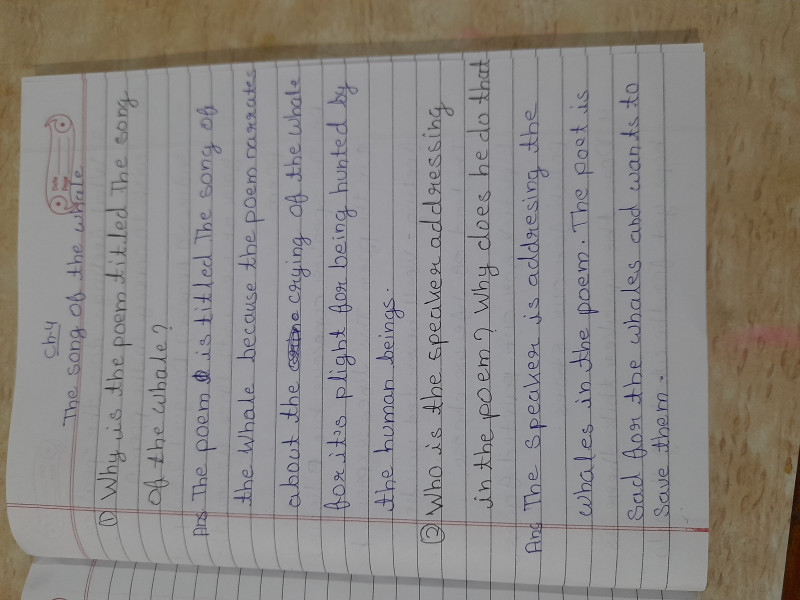 Date
Page
Ch-4
The song of the whale
① Why is the poem titled The song
of the whale?
Ans The poem is titled The song of
the whale because the poem narrates
about the crying of the whale
for it's plight for being hunted by
the human beings.
② Who is the speaker addressing
in the poem? Why does he do that
Ans The speaker is addresing the
whales in the poem. The poet is
sad for the whales and wants to
save them.